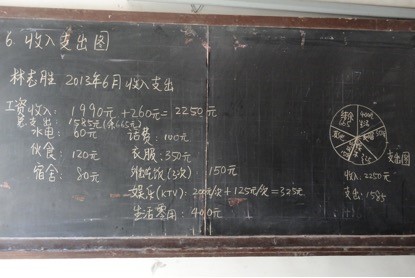 6. 收入支出图
林志胜 2013年6月收入支出
工资收入: 1990元+260元=2250元
总支出: 1585元(余665元)
水电: 60元 话费: 100元
伙食: 120元 衣服: 350元
宿舍: 80元 外出吃饭(3次) 150元
娱乐(KTV): 200元/次+125元/次=325元
生活零用: 400元
支出图
收入: 2250元
支出: 1585